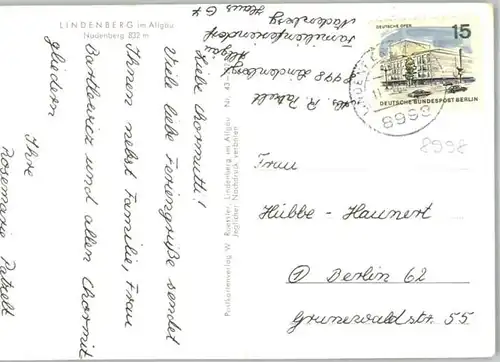 LINDENBERG im Allgäu
Nadenberg 832 m
Liebe Chormutti!
Viele liebe Feriengrüße sendet
Ihnen nebst Familie, Frau
Bartkowicz und allen Chormit
gliedern
Ihre
Rosemarie Patzelt
Abs. R. Patzelt
8998 Lindenberg
Allgäu
Familienferiendorf
Nadenberg
Haus 64
Postkartenverlag W. Roessler, Lindenberg im Allgäu Nr.
Jeglicher Nachdruck verboten
DEUTSCHE OPER
15
DEUTSCHE BUNDESPOST BERLIN
8998
8998
Frau
Hübbe-Haunert
1 Berlin 62
Grunewaldstr. 55